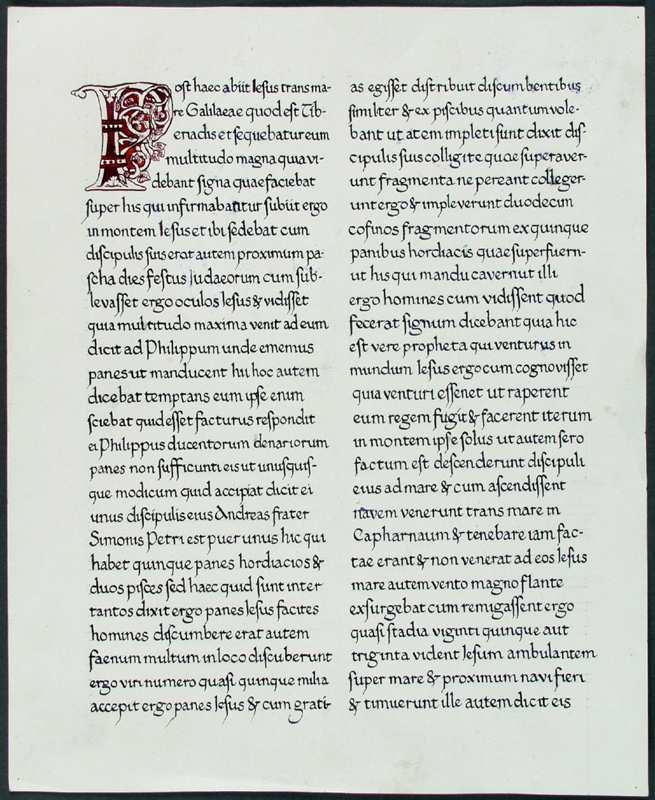 Post haec abiit Iesus trans ma-
re Galilaeae quod est Tib-
eriadis et sequebatur eum
multitudo magna quia vi-
debant signa quae faciebat
super his qui infirmabantur subiit ergo
in montem Iesus et ibi sedebat cum
discipulis suis erat autem proximum pa-
scha dies festus Iudaeorum cum sub-
levasset ergo oculos Iesus & vidisset
quia multitudo maxima venit ad eum
dicit ad Philippum unde ememus
panes ut manducent hii hoc autem
dicebat temptans eum ipse enim
sciebat quid esset facturus respondit
ei Philippus ducentorum denariorum
panes non sufficiunt eis ut unusquis-
que modicum quid accipiat dicit ei
unus discipulis eius Andreas frater
Simonis Petri est puer unus hic qui
habet quinque panes hordiacios &
duos pisces sed haec quid sunt inter
tantos dixit ergo panes Iesus facites
homines discumbere erat autem
faenum multum in loco discuberunt
ergo viri numero quasi quinque milia
accepit ergo panes Iesus & cum grati-
as egisset distribuit discumbentibus
similiter & ex piscibus quantum vole-
bant ut atem impleti sunt dixit dis-
cipulis suis colligite quae superaver-
unt fragmenta ne pereant colleger-
unt ergo & impleverunt duodecin
cofinos fragmentorum ex quinque
panibus hordiacis quae superfuern-
ut his qui manducavernut illi
ergo homines cum vidissent quod
fecerat signum dicebant quia hic
est vere propheta qui venturus in
mundum Iesus ergo cum cognovisset
quia venturi essenet ut raperent
eum regem fugit & facerent iterum
in montem ipse solus ut autem sero
factum est descenderunt discipuli
eius ad mare & cum ascendissent
navem venerunt trans mare in
Capharnaum & tenebare iam fac-
tae erant & non venerat ad eos Iesus
mare autem vento magno flante
exsurgebat cum remigassent ergo
quasi stadia viginti quinque aut
triginta vident Iesum ambulantem
super mare & proximum navi fieri
& timuerunt ille autem dicit eis